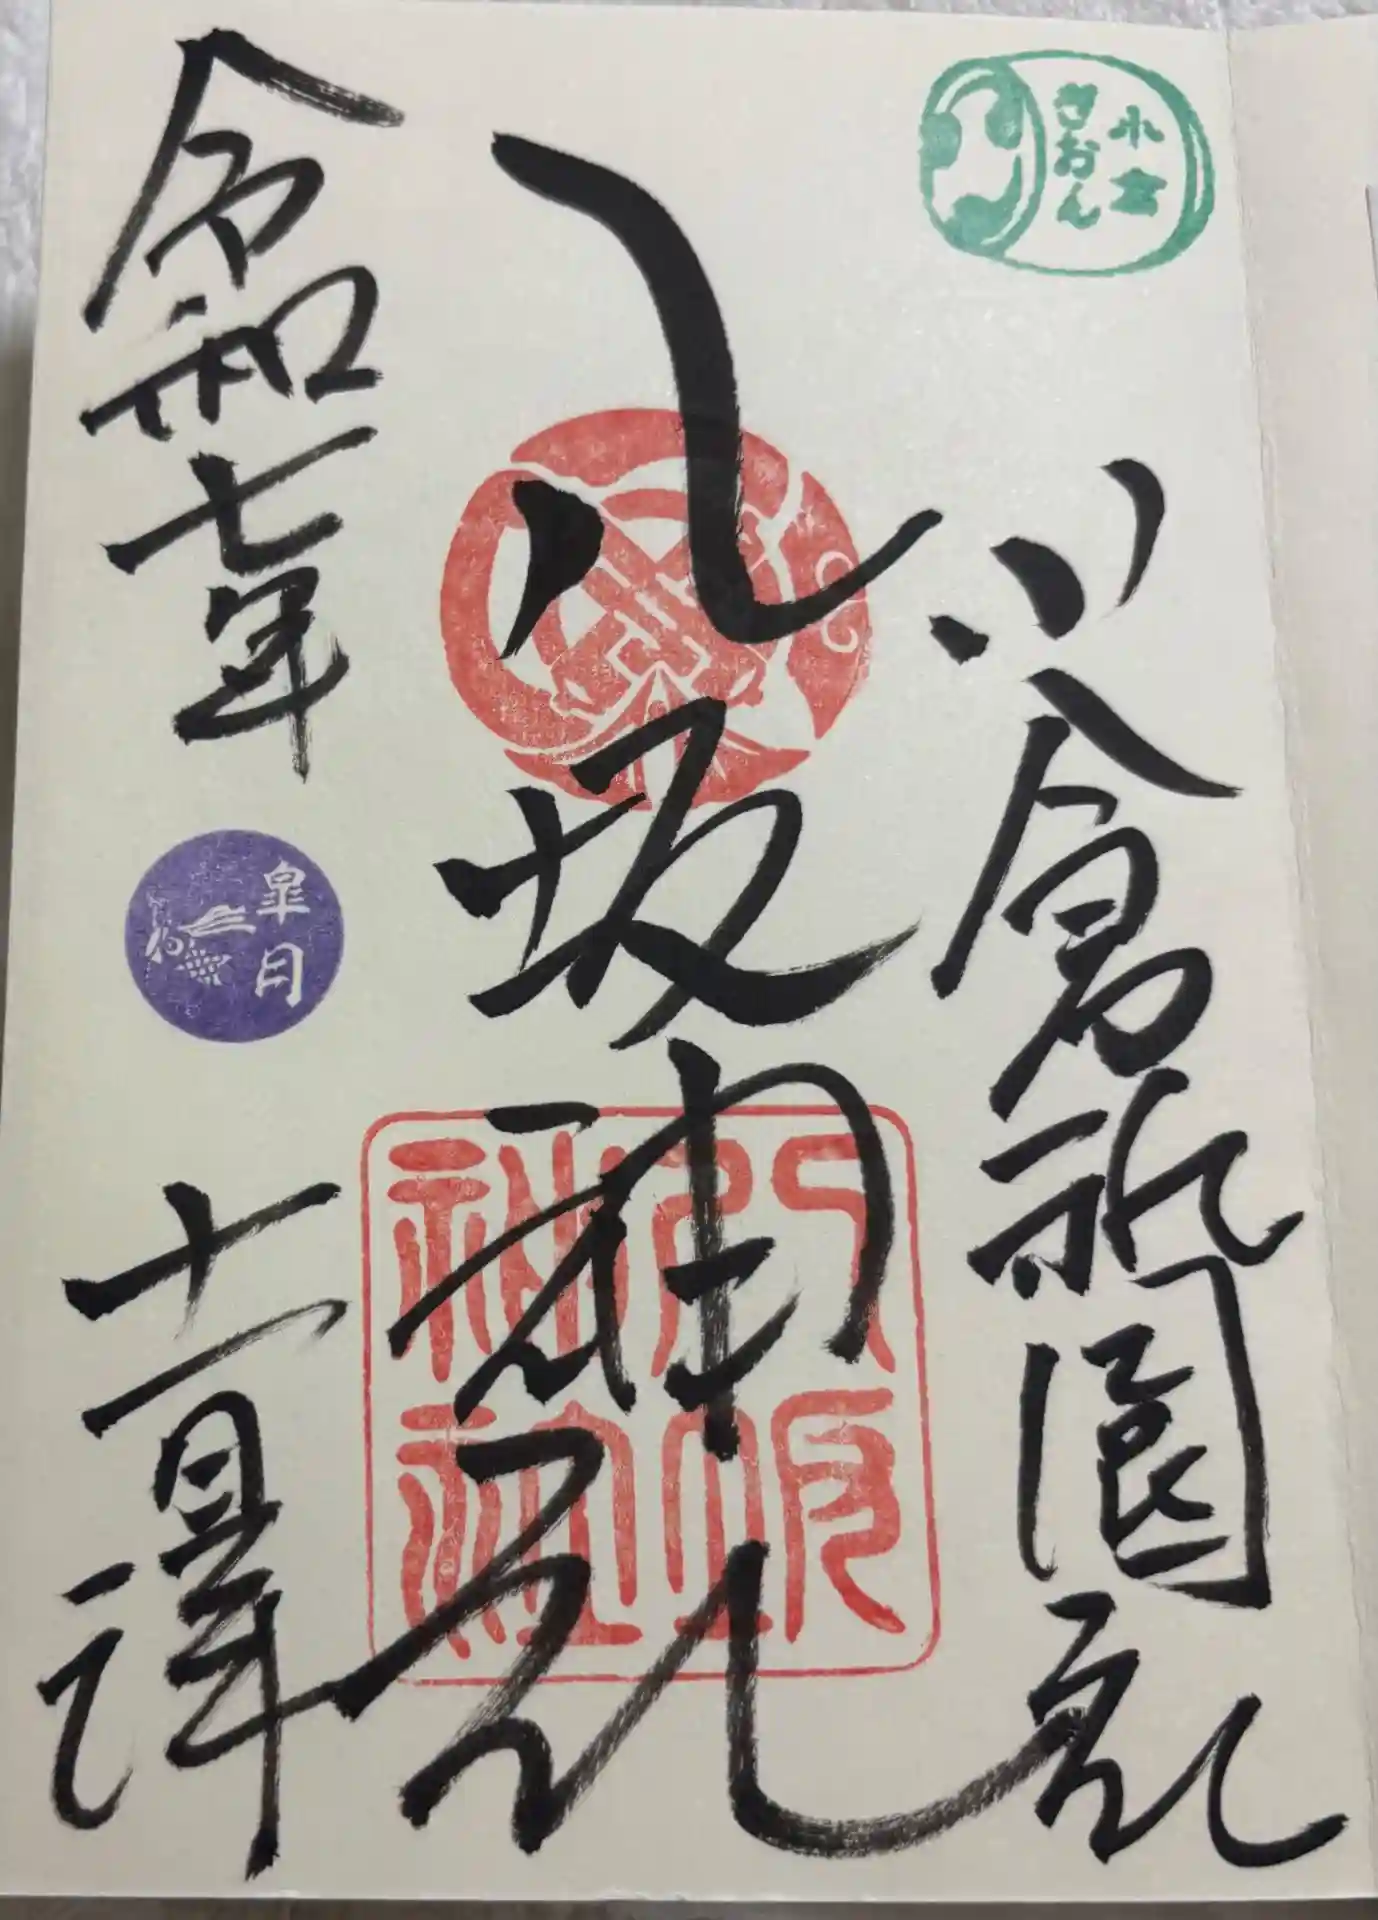 小倉
ぎおん
小倉祇園社
八坂神社
八坂
神社
令和七年
皐月